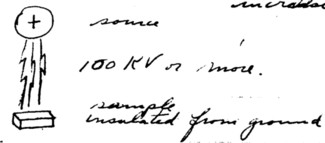 increase
+
source
100 KV or more.
sample
insulated from ground